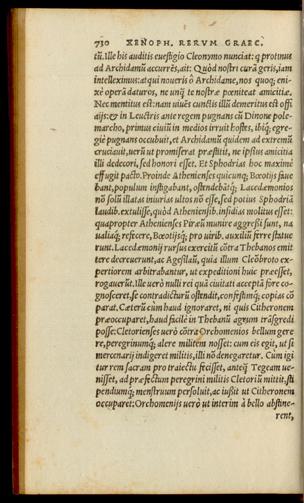 730 XENOPH. RERVM GRAEC.
tũ. Ille his auditis euestigio Cleonymo nunciat: q protinus
ad Archidamũ accurrẽs, ait: Quòd nostri curã geris, iam
intelleximus: at qui noueris ô Archidame, nos quoq; eni-
xè opera daturos, ne unq̃ te nostræ pœniteat amicitiæ.
Nec mentitus est: nam uiuẽs cunctis illũ demeritus est offi
cijs: & in Leuctris ante regem pugnans cũ Dinone pole-
marcho, primus ciuiũ in medios irruit hostes, ibiq; egre-
giè pugnans occubuit, et Archidamũ quidem ad extremũ
cruciauit, uerũ ut promiserat præstitit, ne ipsius amicitia
illi dedecori, sed honori esset. Et Sphodrias hoc maximè
effugit pacto. Proinde Athenienses quicunq; Bœotijs faue
bant, populum instigabant, ostendebãtq́; Lacedæmonios
nõ solũ illatas iniurias ultos nõ esse, sed potius Sphodriã
laudib. extulisse, quòd Atheniensib. insidias molitus esset:
quapropter Athenienses Piræũ munire aggressi sunt, na
ualiaq́; reficere, Bœotijsq́; pro uirib. auxiliũ ferre statue
runt. Lacedæmonij rursus exercitũ cõtra Thebanos emit
tere decreuerunt, ac Agesilaũ, quia illum Cleõbroto ex-
pertiorem arbitrabantur, ut expeditioni huic præesset,
rogauerũt. Ille uerò nulli rei quã ciuitati acceptã fore co-
gnosceret, se contradicturũ ostendit, confestimq́; copias cõ
parat. Cæterũ cùm haud ignoraret, ni quis Citheronem
præoccuparet, haud facilè in Thebanũ agrum trãsgredi
posse: Cletorienses uerò cõtra Orchomenios bellum gere
re, peregrinumq́; alere militem nosset: cum eis egit, ut si
mercenarij indigeret militis, illi nõ denegaretur. Cum igi
tur rem sacram pro traiectu fecisset, anteq̃ Tegeam ue-
nisset, ad præfectum peregrini militis Cletoriũ mittit, sti
pendiumq́; menstruum persoluit, ac iussit ut Citheronem
occuparet: Orchomenijs uerò ut interim à bello abstine-
rent,